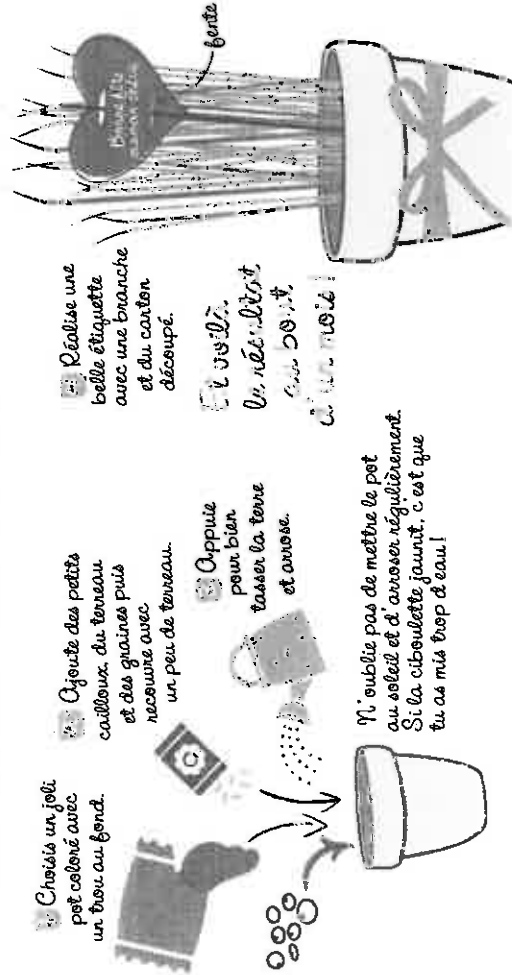 Choisis un joli
pot coloré avec
un trou au fond.
Ajoute des petits
cailloux, du terreau
et des graines puis
recouvre avec
un peu de terreau.
Appuie
pour bien
tasser la terre
et arrose.
N'oublie pas de mettre le pot
au soleil et d'arroser régulièrement.
Si la ciboulette jaunit, c'est que
tu as mis trop d'eau!
Réalise une
belle étiquette
avec une branche
et du carton
découpé.
Et voilà
le résultat
au bout
d'un mois!
fente
Bonne fête